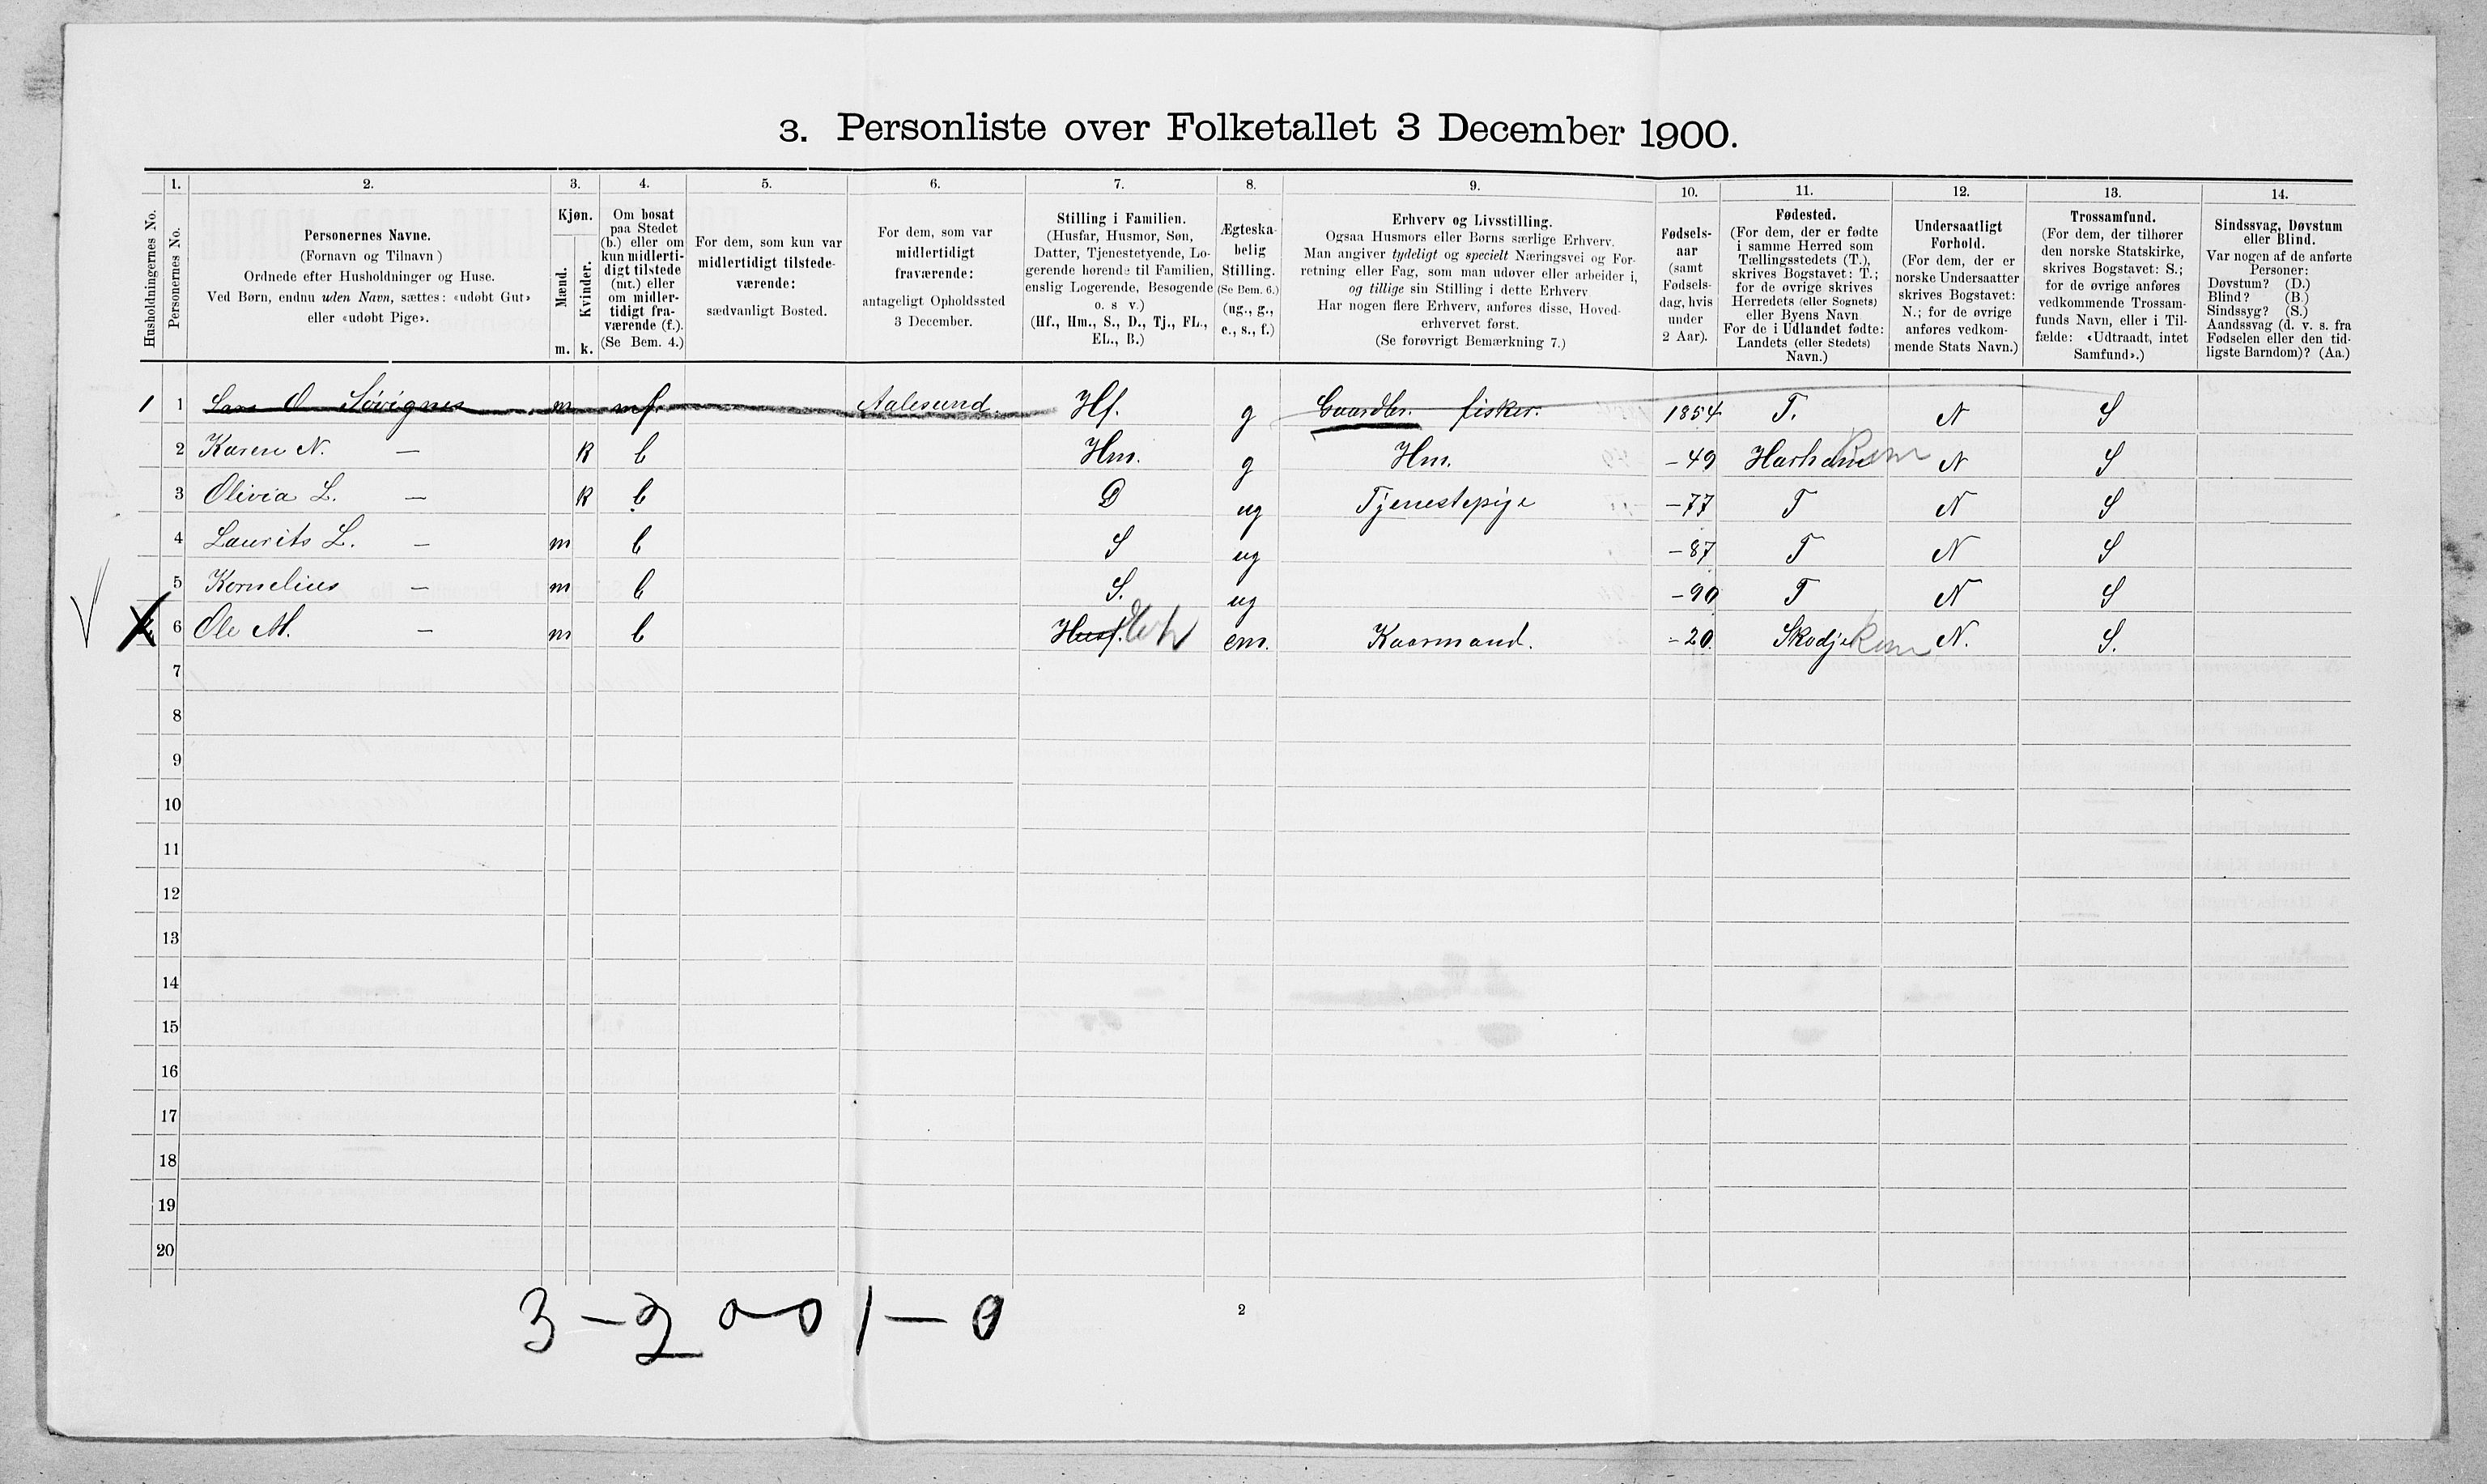 3. Personliste over Folketallet 3 December 1900.
Husholdningernes No.
1.
Personernes No.
2.
Personernes Navne.
(Fornavn og Tilnavn)
Ordnede efter Husholdninger og Huse.
Ved Børn, endnu uden Navn, sættes: «udøbt Gut»
eller «udøbt Pige».
3.
Kjøn.
Mænd.
Kvinder.
m. k.
4.
Om bosat
paa Stedet
(b.) eller om
kun midlerti-
digt tilstede
(mt.) eller
om midler-
tidigt fra-
værende (f.).
(Se Bem. 4.)
5.
For dem, som kun var
midlertidigt tilstede-
værende:
sædvanligt Bosted.
6.
For dem, som var
midlertidigt
fraværende:
antageligt Opholdssted
3 December.
7.
Stilling i Familien.
(Husfar, Husmor, Søn,
Datter, Tjenestetyende, Lo-
gerende hørende til Familien,
enslig Logerende, Besøgende
o. s v.)
(Hf., Hm., S., D., Tj., FL.,
EL., B.)
8.
Ægteska-
belig
Stilling.
(Se Bem. 6.)
(ug., g.,
e., s., f.)
9.
Erhverv og Livsstilling.
Ogsaa Husmors eller Børns særlige Erhverv.
Man angiver tydeligt og specielt Næringsvei og For-
retning eller Fag, som man udøver eller arbeider i,
og tillige sin Stilling i dette Erhverv
Har nogen flere Erhverv, anføres disse, Hoved-
erhvervet først.
(Se forøvrigt Bemærkning 7.)
10.
Fødsels-
aar
(samt
Fødsels-
dag, hvis
under
2 Aar).
11.
Fødested.
(For dem, der er fødte
i samme Herred som
Tællingsstedets (T.),
skrives Bogstavet: T.;
for de øvrige skrives
Herredets (eller Sognets)
eller Byens Navn
For de i Udlandet fødte:
Landets (eller Stedets)
Navn.)
12.
Undersaatligt
Forhold.
(For dem, der er
norske Undersaatter
skrives Bogstavet:
N.; for de øvrige
anføres vedkom-
mende Stats Navn.)
13.
Trossamfund.
(For dem, der tilhører
den norske Statskirke,
skrives Bogstavet: S.;
for de øvrige anføres
vedkommende Trossam-
funds Navn, eller i Til-
fælde: «Udtraadt, intet
Samfund».)
14.
Sindssvag, Døvstum
eller Blind.
Var nogen af de anførte
Personer:
Døvstum? (D.)
Blind? (B.)
Sindssyg? (S.)
Aandssvag (d. v. s. fra
Fødselen eller den tid-
ligste Barndom)? (Aa.)
1 1 Lars O. Søvignes m mf. Aalesund. Hf. g Gaardbr. fisker. 1854 T. N S
2 Karen N. — k b Hm. g Hm. -49 Harham N S
3 Olivia L. — k b D ug Tjenestepige -77 T N S
4 Laurits L. — m b S ug -87 T N S
5 Kornelius — m b S. ug -90 T N S
6 Ole M. — m b Husf. em. Kaarmand. -20. Skodje N. S.
7
8
9
10
11
12
13
14
15
16
17
18
19
20
3 - 2
1 - 0
2